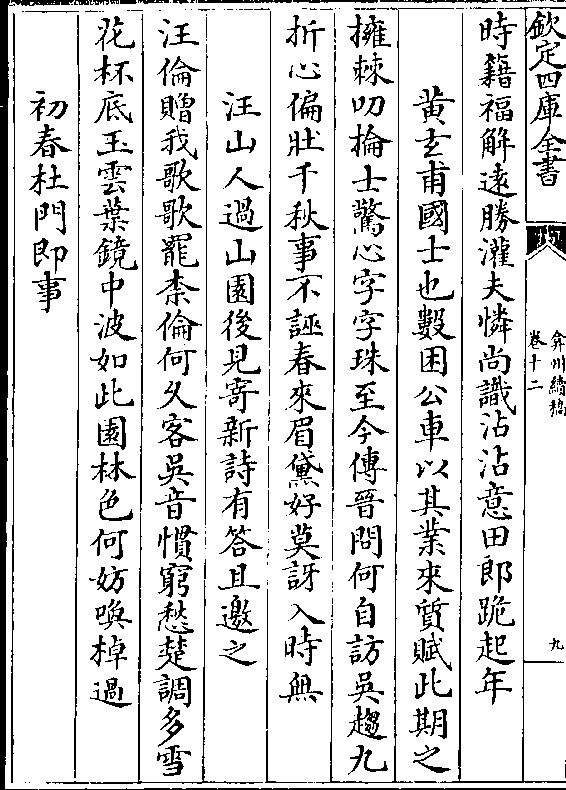 欽定四庫全書
弇州續稿
卷十二
九
時籍福解遠勝灌夫憐尚識沾沾意田郎跪起年
黄玄甫國士也數困公車以其業來質賦此期之
擁棘叨掄士驚心字字珠至今傳晉問何自訪吳趨九
折心偏壯千秋事不誣春來眉黛好莫訝入時無
汪山人過山園後見寄新詩有答且邀之
汪倫贈我歌歌罷柰倫何久客吳音慣窮愁楚調多雪
花杯底玉雲葉鏡中波如此園林色何妨喚棹過
初春杜門即事